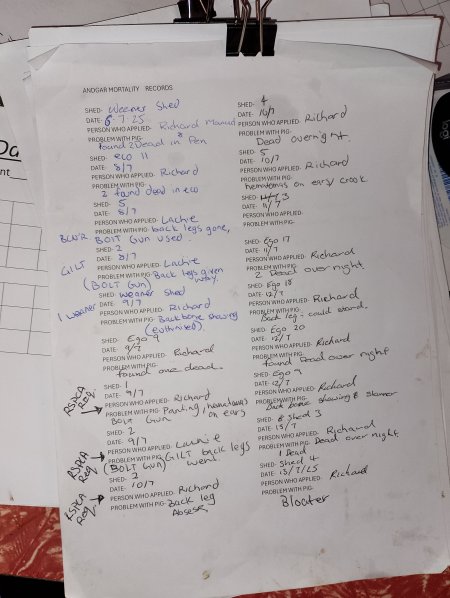 ANDGAR MORTALITY RECORDS
SHED- Weener Shed
DATE- 6.7.25
PERSON WHO APPLIED- Richard Manual
PROBLEM WITH PIG-
found 2 Dead in Pen
SHED- eco 11
DATE- 8/7
PERSON WHO APPLIED- Richard
PROBLEM WITH PIG-
2 found dead in eco
SHED- 5
DATE- 8/7
PERSON WHO APPLIED- Lachie
PROBLEM WITH PIG- back legs gone,
BOLT Gun used.
SHED- 2
DATE- 8/7
GILT PERSON WHO APPLIED- Lachie
PROBLEM WITH PIG- Back legs given
(BOLT Gun) way.
SHED- weaner shed
DATE- 9/7
1 weaner PERSON WHO APPLIED- Richard
PROBLEM WITH PIG- Backbone showing
(euthnised).
SHED- Ego 9
DATE- 9/7
PERSON WHO APPLIED- Richard
PROBLEM WITH PIG-
found one dead.
SHED- 1
DATE- 9/7
RSPCA Req. PERSON WHO APPLIED- Richard
PROBLEM WITH PIG- Panting, hemotomas
BOLT Gun on ears
SHED- 2
DATE- 9/7
RSPCA Req. PERSON WHO APPLIED- Lachie
PROBLEM WITH PIG- GILT back legs
(BOLT Gun) went.
SHED- 3
DATE- 10/7
RSPCA Req. PERSON WHO APPLIED- Richard
PROBLEM WITH PIG- Back leg
Abseses
SHED- 4
DATE- 10/7
PERSON WHO APPLIED- Richard
PROBLEM WITH PIG-
Dead overnight
SHED- 5
DATE- 10/7
PERSON WHO APPLIED- Richard
PROBLEM WITH PIG-
hematomas on ears, crook
SHED- 3
DATE- 11/7
PERSON WHO APPLIED-
PROBLEM WITH PIG-
SHED- Ego 17
DATE- 11/7
PERSON WHO APPLIED- Richard
PROBLEM WITH PIG-
2 Dead over night.
SHED- Ego 18
DATE- 12/7
PERSON WHO APPLIED- Richard
PROBLEM WITH PIG-
Back leg -
SHED- Ego 20
DATE- 12/7
PERSON WHO APPLIED- Richard
PROBLEM WITH PIG-
found Dead over night
SHED- Ego 9
DATE- 12/7
PERSON WHO APPLIED- Richard
PROBLEM WITH PIG-
Back bone showing &
SHED- Shed 3
DATE- 13/7
PERSON WHO APPLIED- Richard
PROBLEM WITH PIG- Dead over night.
1 Dead
SHED- Shed 4
DATE- 13/7/25
PERSON WHO APPLIED- Richard
PROBLEM WITH PIG-
Bloater